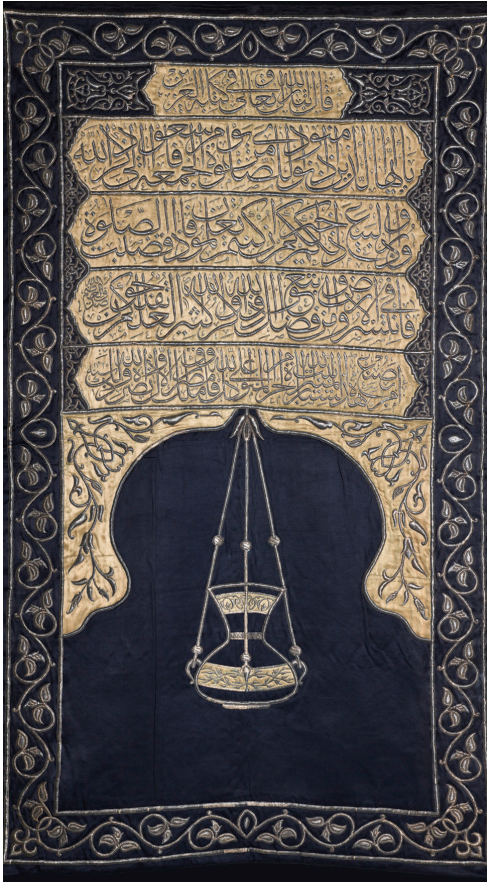 قال الله تبارك وتعالى في كتابه العزيز
يا أيها الذين آمنوا إذا نودي للصلوة من يوم الجمعة فاسعوا إلى ذكر الله
وذروا البيع ذلكم خير لكم إن كنتم تعلمون فإذا قضيت الصلوة
فانتشروا في الأرض وابتغوا من فضل الله واذكروا الله كثيرا لعلكم تفلحون
صنع هذا